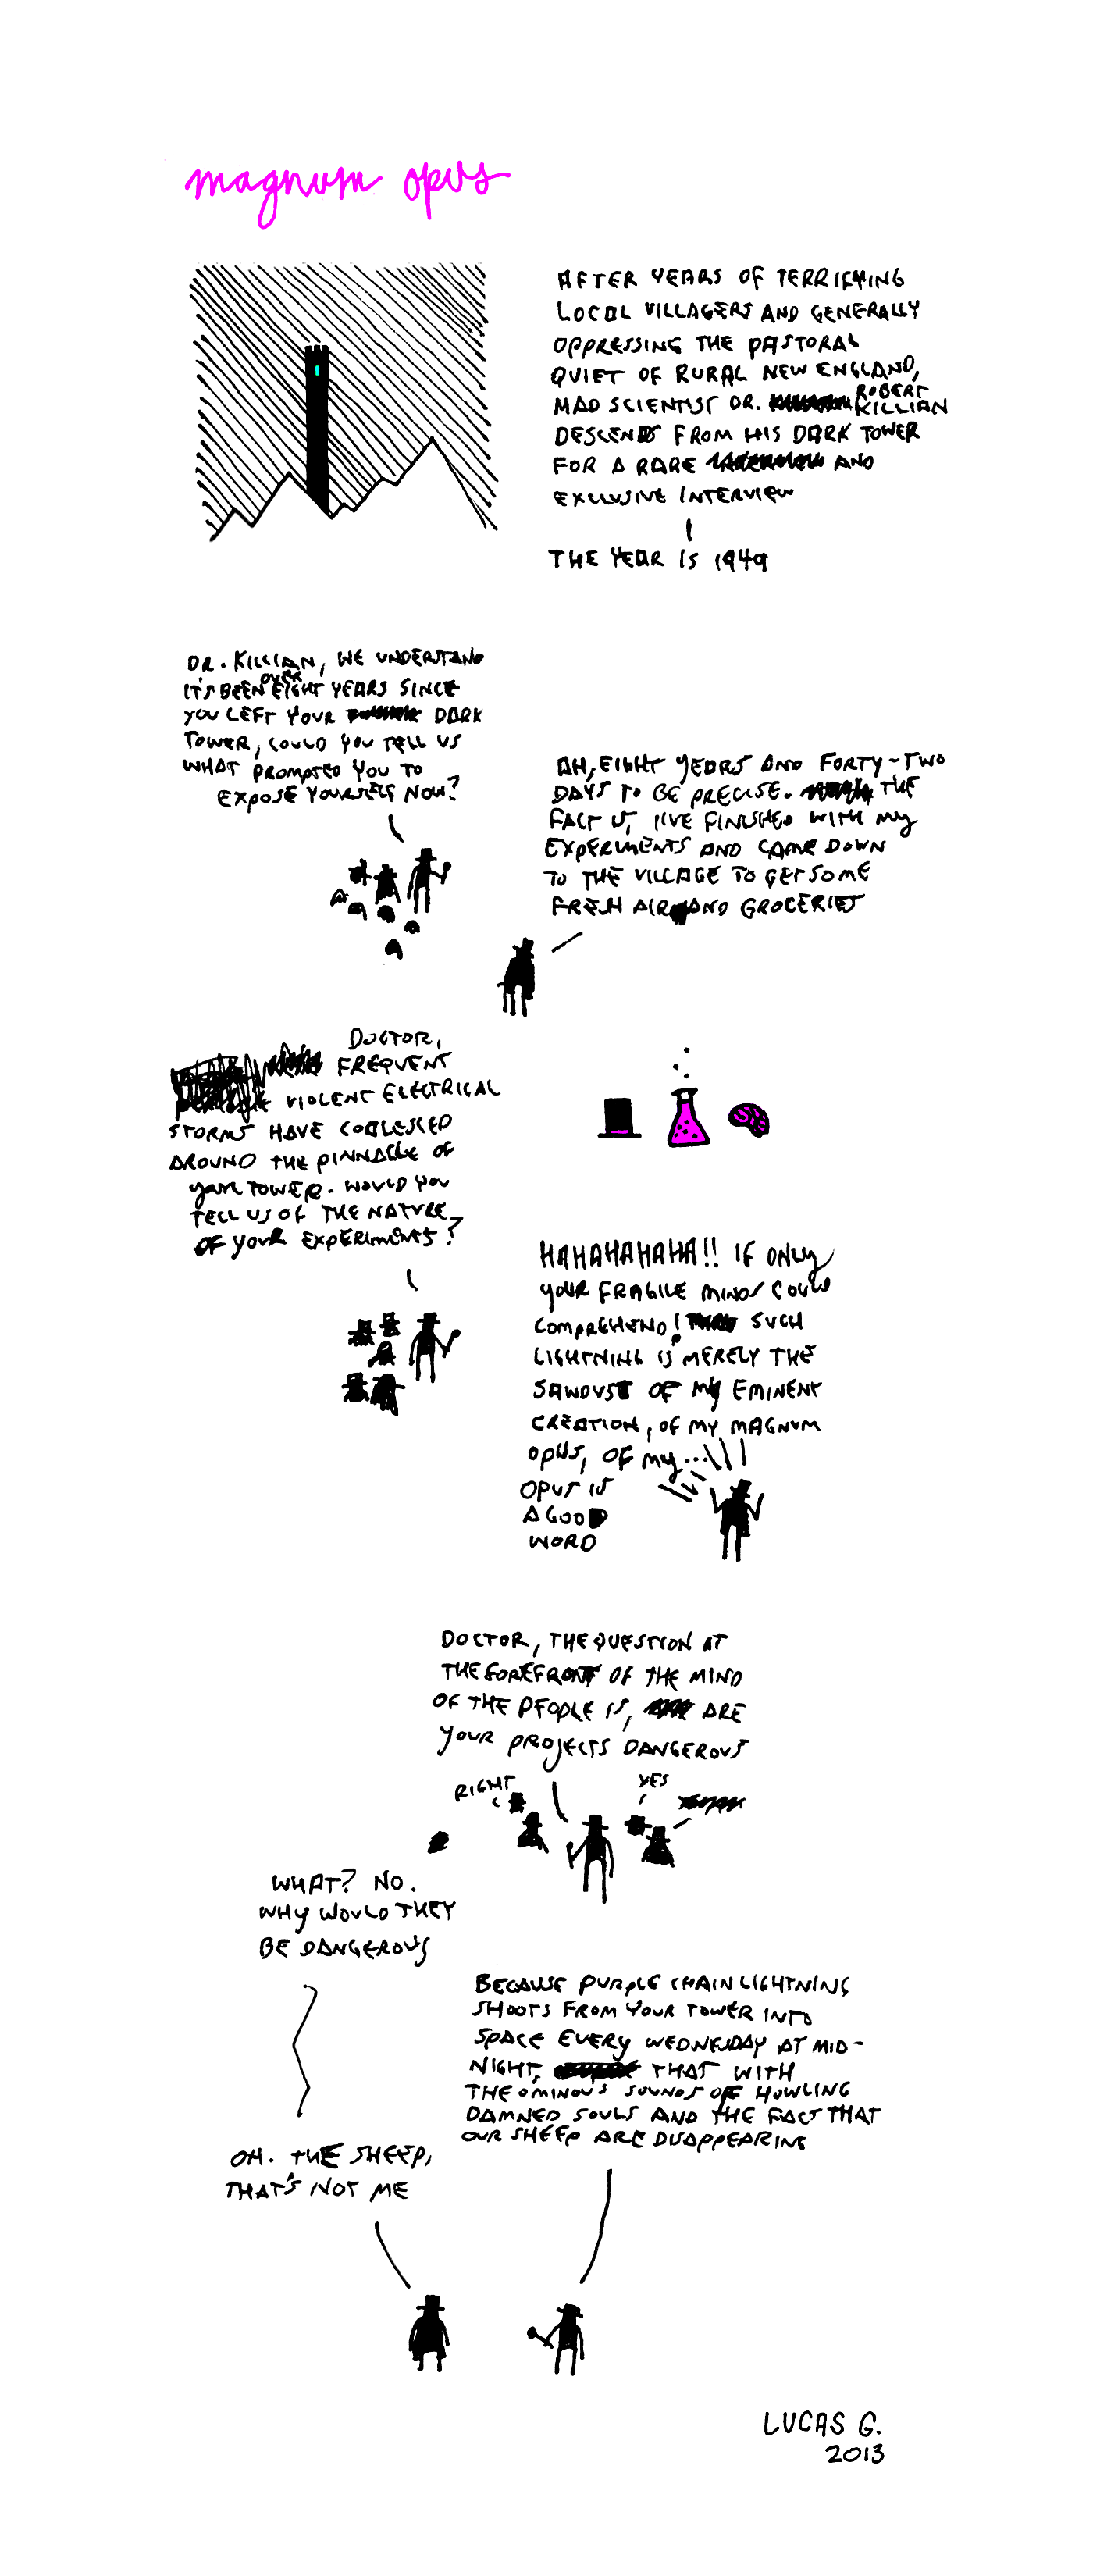 magnum opus
AFTER YEARS OF TERRIFYING
LOCAL VILLAGERS AND GENERALLY
OPPRESSING THE PASTORAL
QUIET OF RURAL NEW ENGLAND,
MAD SCIENTIST DR. ROBERT KILLIAN
DESCENDS FROM HIS DARK TOWER
FOR A RARE AND
EXCLUSIVE INTERVIEW
THE YEAR IS 1949
DR. KILLIAN, WE UNDERSTAND
IT'S BEEN OVER EIGHT YEARS SINCE
YOU LEFT YOUR DARK
TOWER, COULD YOU TELL US
WHAT PROMPTED YOU TO
EXPOSE YOURSELF NOW?
AH, EIGHT YEARS AND FORTY-TWO
DAYS TO BE PRECISE. THE
FACT IS, I'VE FINISHED WITH MY
EXPERIMENTS AND CAME DOWN
TO THE VILLAGE TO GET SOME
FRESH AIR AND GROCERIES
DOCTOR,
FREQUENT
VIOLENT ELECTRICAL
STORMS HAVE COALESCED
AROUND THE PINNACLE OF
YOUR TOWER. WOULD YOU
TELL US OF THE NATURE
OF YOUR EXPERIMENTS?
HAHAHAHAHA!! IF ONLY
YOUR FRAGILE MINDS COULD
COMPREHEND! SUCH
LIGHTNING IS MERELY THE
SAWDUST OF MY EMINENT
CREATION, OF MY MAGNUM
OPUS, OF MY...
OPUS IS
A GOOD
WORD
DOCTOR, THE QUESTION AT
THE FOREFRONT OF THE MIND
OF THE PEOPLE IS, ARE
YOUR PROJECTS DANGEROUS
RIGHT
YES
WHAT? NO.
WHY WOULD THEY
BE DANGEROUS
BECAUSE PURPLE CHAIN LIGHTNING
SHOOTS FROM YOUR TOWER INTO
SPACE EVERY WEDNESDAY AT MID-
NIGHT, THAT WITH
THE OMINOUS SOUNDS OF HOWLING
DAMNED SOULS AND THE FACT THAT
OUR SHEEP ARE DISAPPEARING
OH. THE SHEEP,
THAT'S NOT ME
LUCAS G.
2013